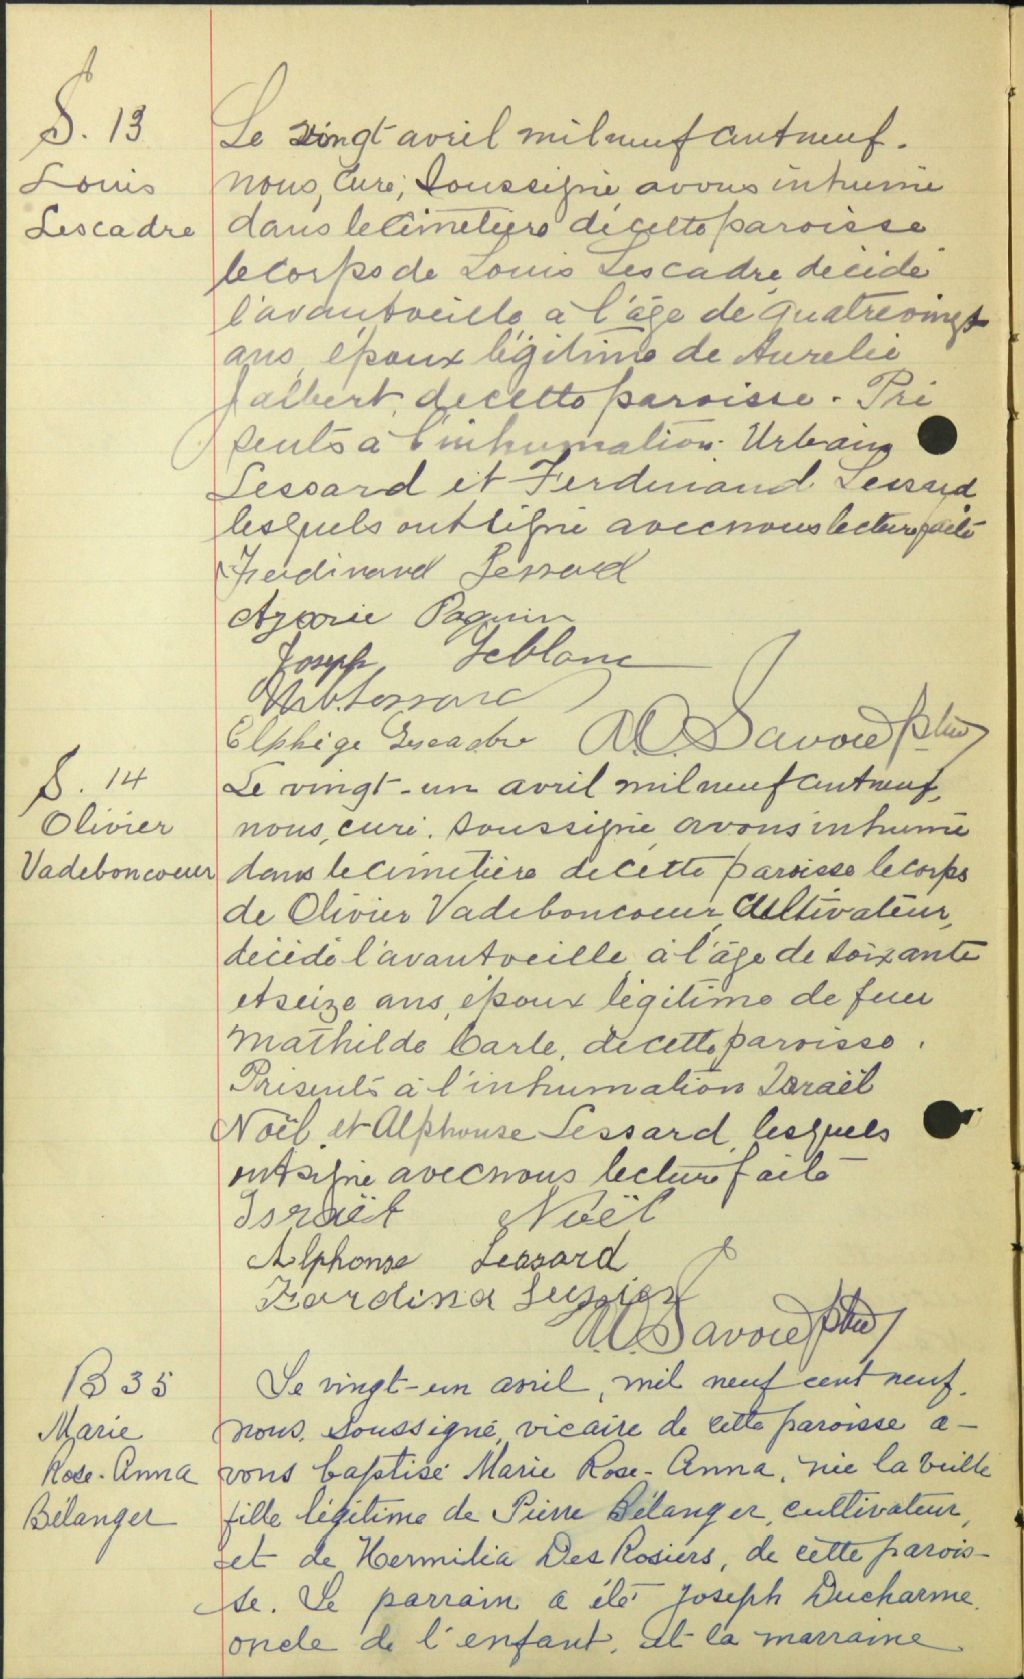 S. 13
Louis
Lescadre
Le vingt avril mil neuf cent neuf.
nous, curé, soussigné, avons inhumé
dans le cimetière de cette paroisse
le corps de Louis Lescadre, décédé
l'avantveille, à l'âge de quatrevingt
ans, époux légitime de Aurelie
Jalbert, de cette paroisse. Pré
sents à l'inhumation: Urbain
Lessard et Ferdinand Lessard
lesquels ont signé avec nous lecture faite
Ferdinand Lessard
Azarie Paquin
Joseph Leblanc
Urb. Lessard
Elphège Lescadre
Savoie ptre
S. 14
Olivier
Vadeboncoeur
Le vingt-un avril mil neuf cent neuf,
nous, curé, soussigné, avons inhumé
dans le cimetière de cette paroisse le corps
de Olivier Vadeboncoeur, cultivateur,
décédé l'avantveille, à l'âge de soixante
et seize ans, époux légitime de feue
Mathilde Carle, de cette paroisse.
Présents à l'inhumation Israël
Noël et Alphonse Lessard, lesquels
ont signé avec nous lecture faite
Israël Noël
Alphonse Lessard
Savoie ptre
B 35
Marie
Rose-Anna
Bélanger
Le vingt-un avril, mil neuf cent neuf,
nous, soussigné, vicaire de cette paroisse a-
vons baptisé Marie Rose-Anna, née la veille
fille légitime de Pierre Bélanger, cultivateur,
et de Hermilia DesRosiers, de cette parois-
se. Le parrain a été Joseph Ducharme,
oncle de l'enfant, et la marraine